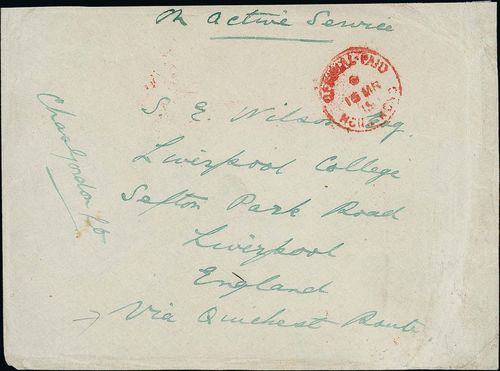 On Active Service
OFFICIAL PAID
18 MR
HONG KONG
S. E. Wilson Esq.
Liverpool College
Sefton Park Road
Liverpool
England
Via Quichest Route
Chas Gordon